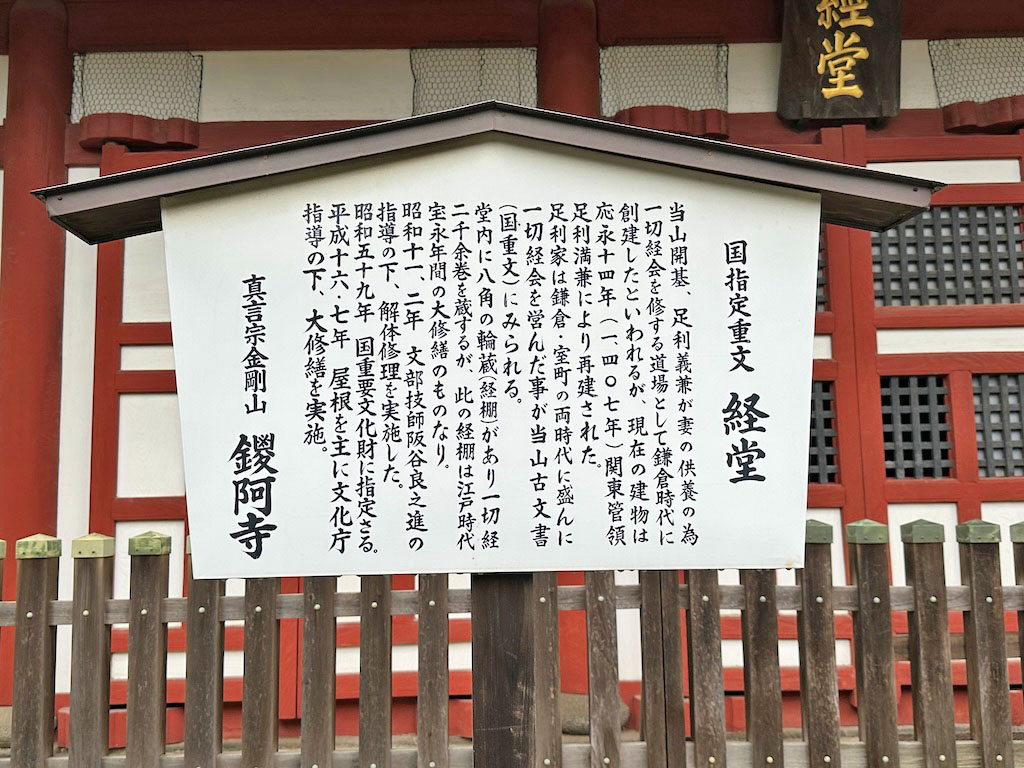 經堂
国指定重文 経堂
当山開基、足利義兼が妻の供養の為
一切経会を修する道場として鎌倉時代に
創建したといわれるが、現在の建物は
応永十四年(一、四〇七年)関東管領
足利満兼により再建された。
足利家は鎌倉・室町の両時代に盛んに
一切経会を営んだ事が当山古文書
(国重文)にみられる。
堂内に八角の輪蔵(経棚)があり一切経
二千余巻を蔵するが、此の経棚は江戸時代
宝永年間の大修繕のものなり。
昭和十一、二年 文部技師阪谷良之進の
指導の下、解体修理を実施した。
昭和五十九年 国重要文化財に指定さる。
平成十六・七年 屋根を主に文化庁
指導の下、大修繕を実施。
真言宗金剛山 鑁阿寺